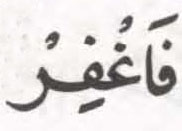 فَاغْفِرْ